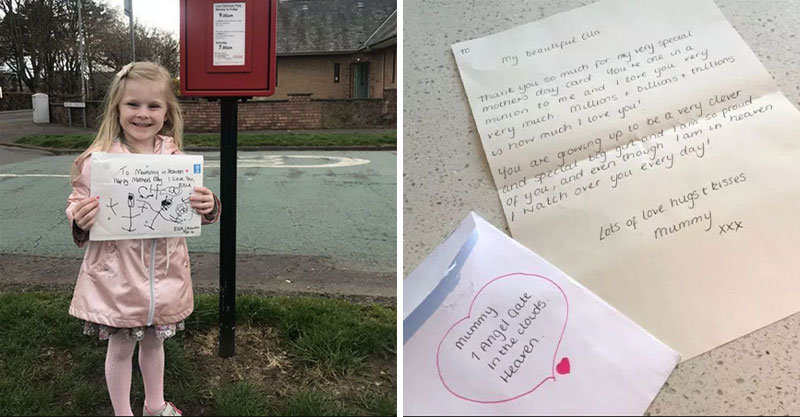 9.00am
7.00am
To Mummy in Heaven
Happy Mothers Day I Love You
Ella
To
My beautiful Ella
Thank you so much for my very special
mothers day card. You're one in a
minion to me and I love you very
very much. Millions + billions + trillions
is how much I love you!
You are growing up to be a very clever
and special big girl and I am so proud
of you, and even though I am in heaven
I watch over you every day!
Lots of love hugs + kisses
Mummy
xxx
Mummy
1 Angel Gate
In the clouds
Heaven.